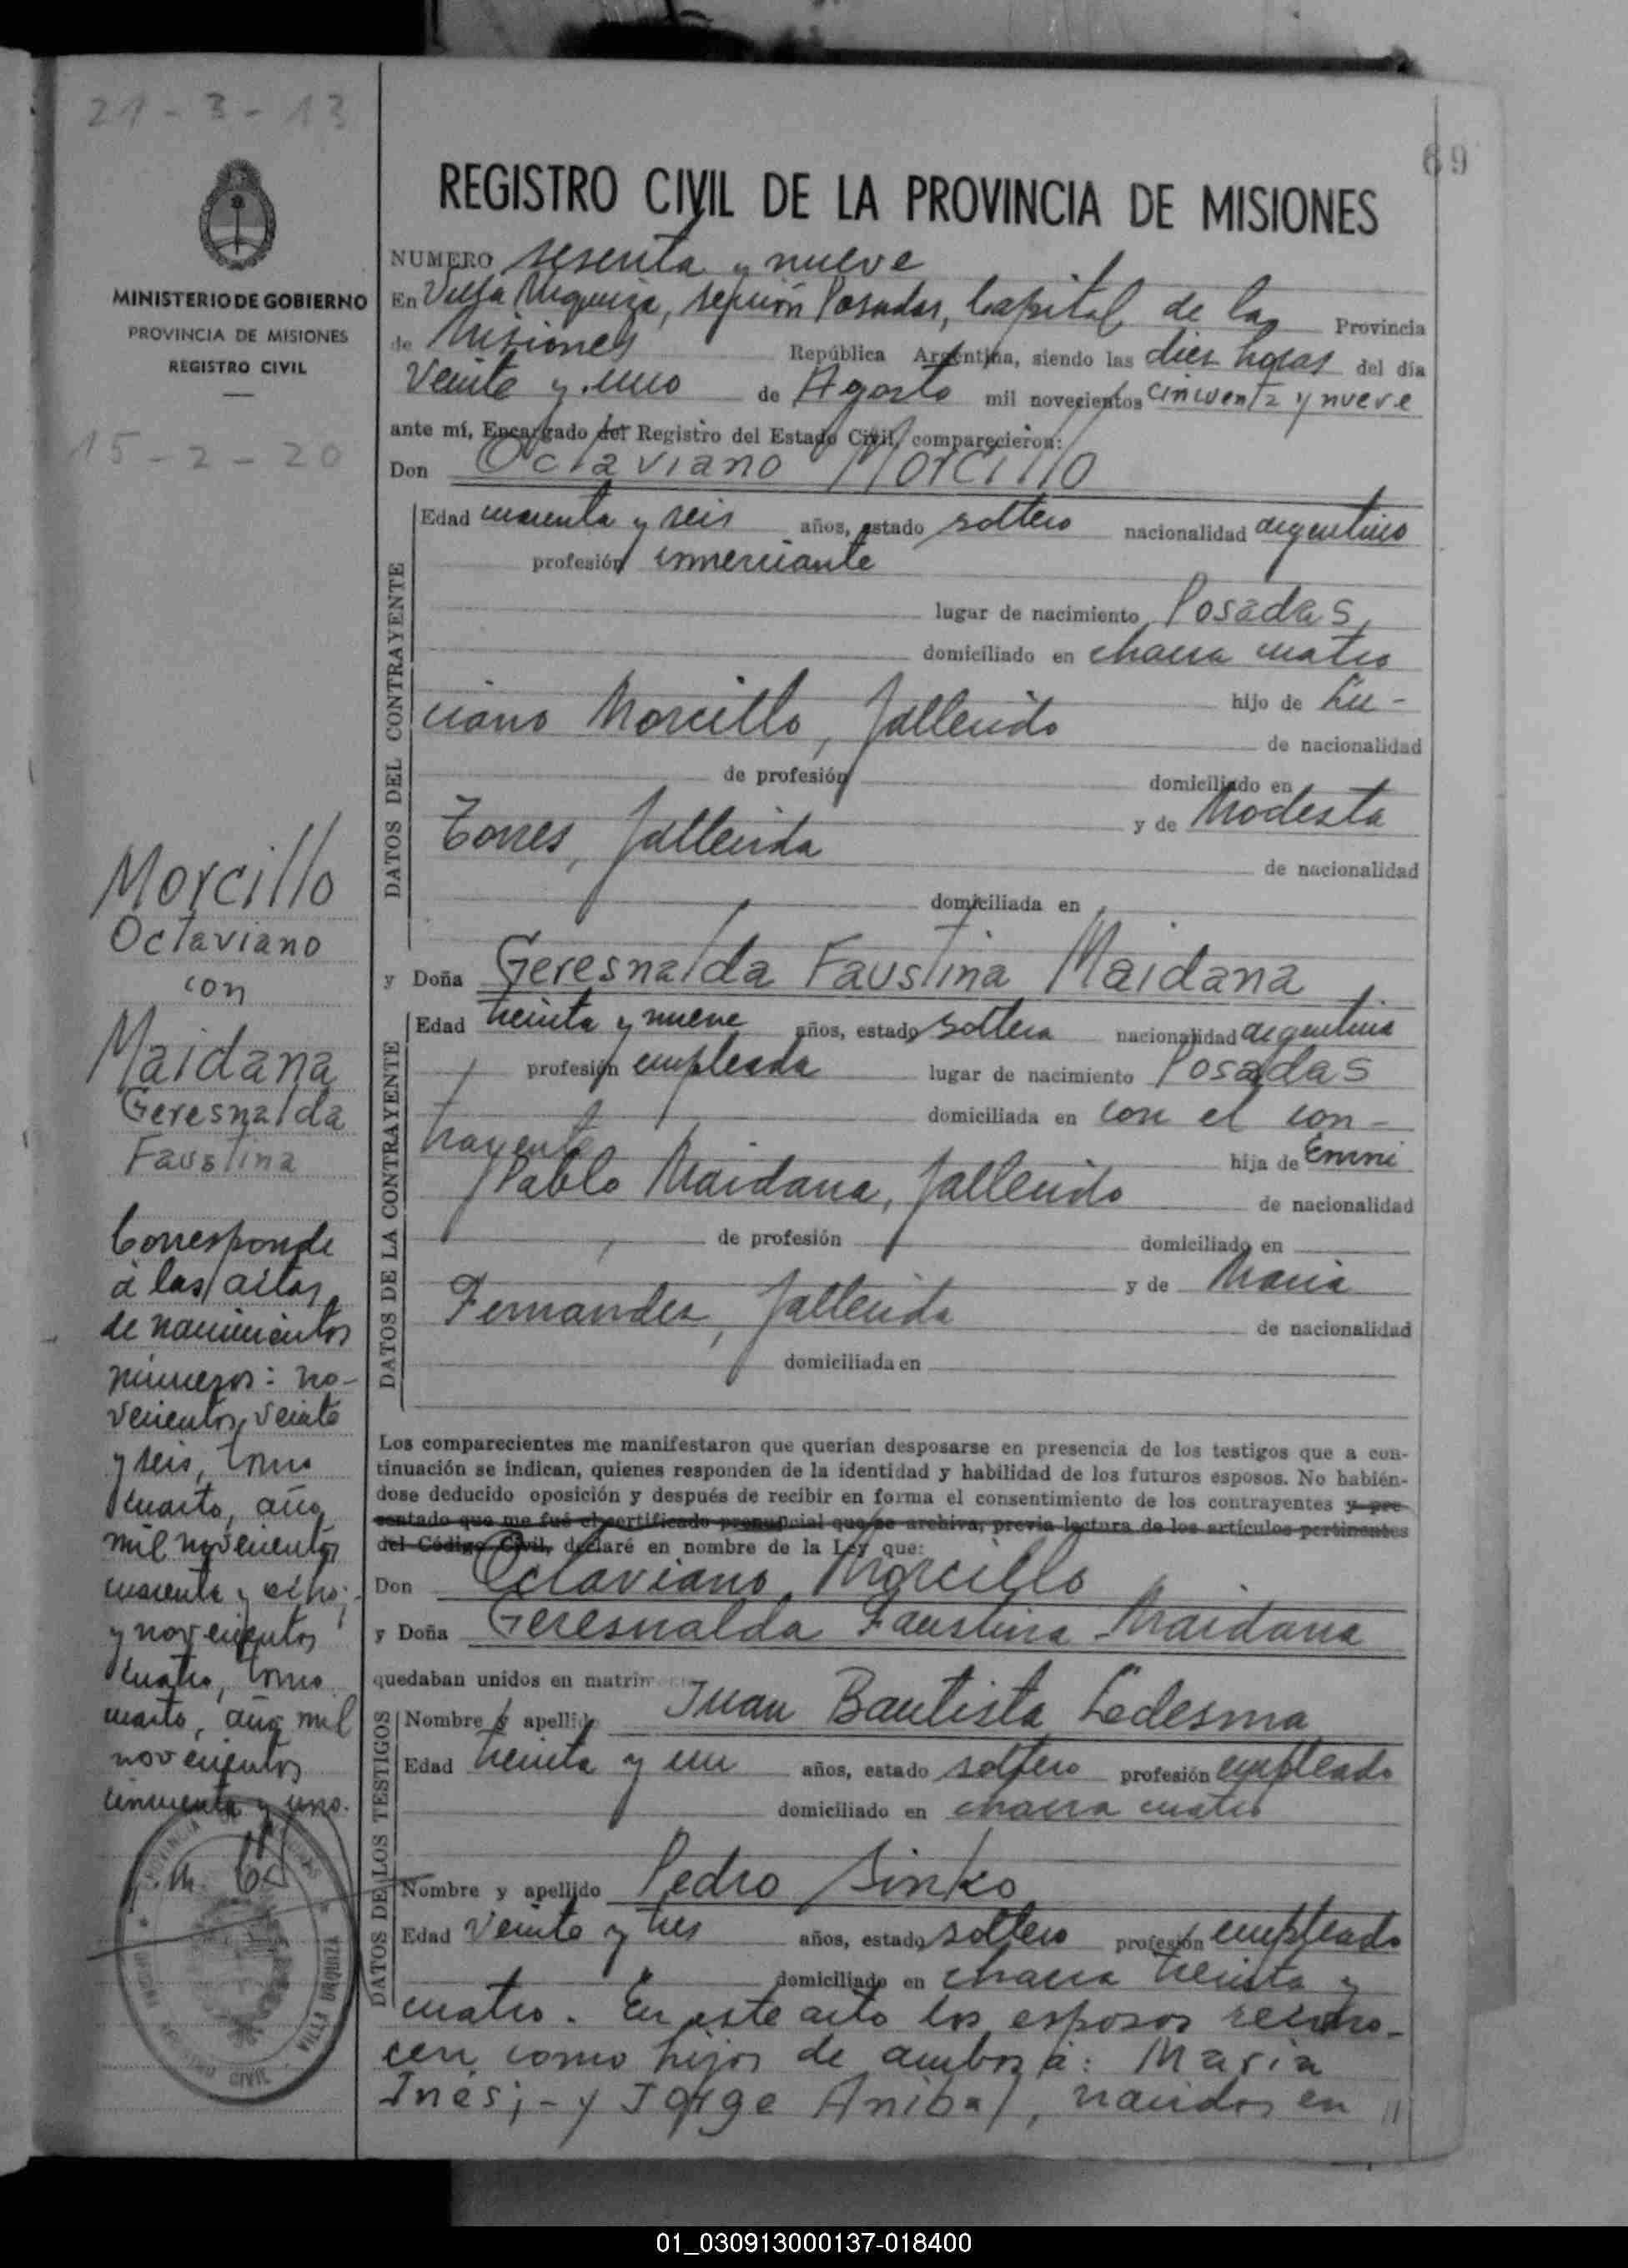 21-3-13
69
REGISTRO CIVIL DE LA PROVINCIA DE MISIONES
MINISTERIO DE GOBIERNO
PROVINCIA DE MISIONES
REGISTRO CIVIL
15-2-20
NUMERO sesenta y nueve
En Villa Urquiza, sección Posadas, Capital de la Provincia
de Misiones República Argentina, siendo las diez horas del día
veinte y uno de Agosto mil novecientos cincuenta y nueve
ante mí, Encargado del Registro del Estado Civil, comparecieron:
Don Octaviano Morcillo
DATOS DEL CONTRAYENTE
Edad cuarenta y seis años, estado soltero nacionalidad argentino
profesión comerciante
lugar de nacimiento Posadas,
domiciliado en chacra cuatro
hijo de Lu-
ciano Morcillo, fallecido
de nacionalidad
de profesión domiciliado en
y de Modesta
Torres, fallecida
de nacionalidad
domiciliada en
y Doña Geresnalda Faustina Maidana
DATOS DE LA CONTRAYENTE
Edad treinta y nueve años, estado soltera nacionalidad argentina
profesión empleada lugar de nacimiento Posadas
domiciliada en con el con-
trayente
hija de
Pablo Maidana, fallecido de nacionalidad
de profesión domiciliado en
y de Maria
Fernandez, fallecida
de nacionalidad
domiciliada en
Los comparecientes me manifestaron que querían desposarse en presencia de los testigos que a con-
tinuación se indican, quienes responden de la identidad y habilidad de los futuros esposos. No habién-
dose deducido oposición y después de recibir en forma el consentimiento de los contrayentes y pre-
sentado que me fué el certificado prenupcial que se archiva, previa lectura de los artículos pertinentes
del Código Civil, declaré en nombre de la Ley que:
Don Octaviano Morcillo
y Doña Geresnalda Faustina Maidana
quedaban unidos en matrim
DATOS DE LOS TESTIGOS
Nombre y apellido Juan Bautista Ledesma
Edad treinta y un años, estado soltero profesión empleado
domiciliado en chacra cuatro
Nombre y apellido Pedro Sinko
Edad veinte y tres años, estado soltero profesión empleado
domiciliado en chacra treinta y
cuatro. En este acto los esposos recono-
cen como hijos de ambos á: Maria
Inés;- y Jorge Anibal, nacidos en //
Morcillo
Octaviano
con
Maidana
Geresnalda
Faustina
Corresponde
á las actas
de nacimientos
números: no-
vecientos veinte
y seis, tomo
cuarto, año
mil novecientos
cuarenta y ocho;
y novecientos
cuatro, tomo
cuarto, año mil
novecientos
cincuenta y uno.
PROVINCIA DE MISIONES
VILLA URQUIZA
REGISTRO CIVIL
01_030913000137-018400